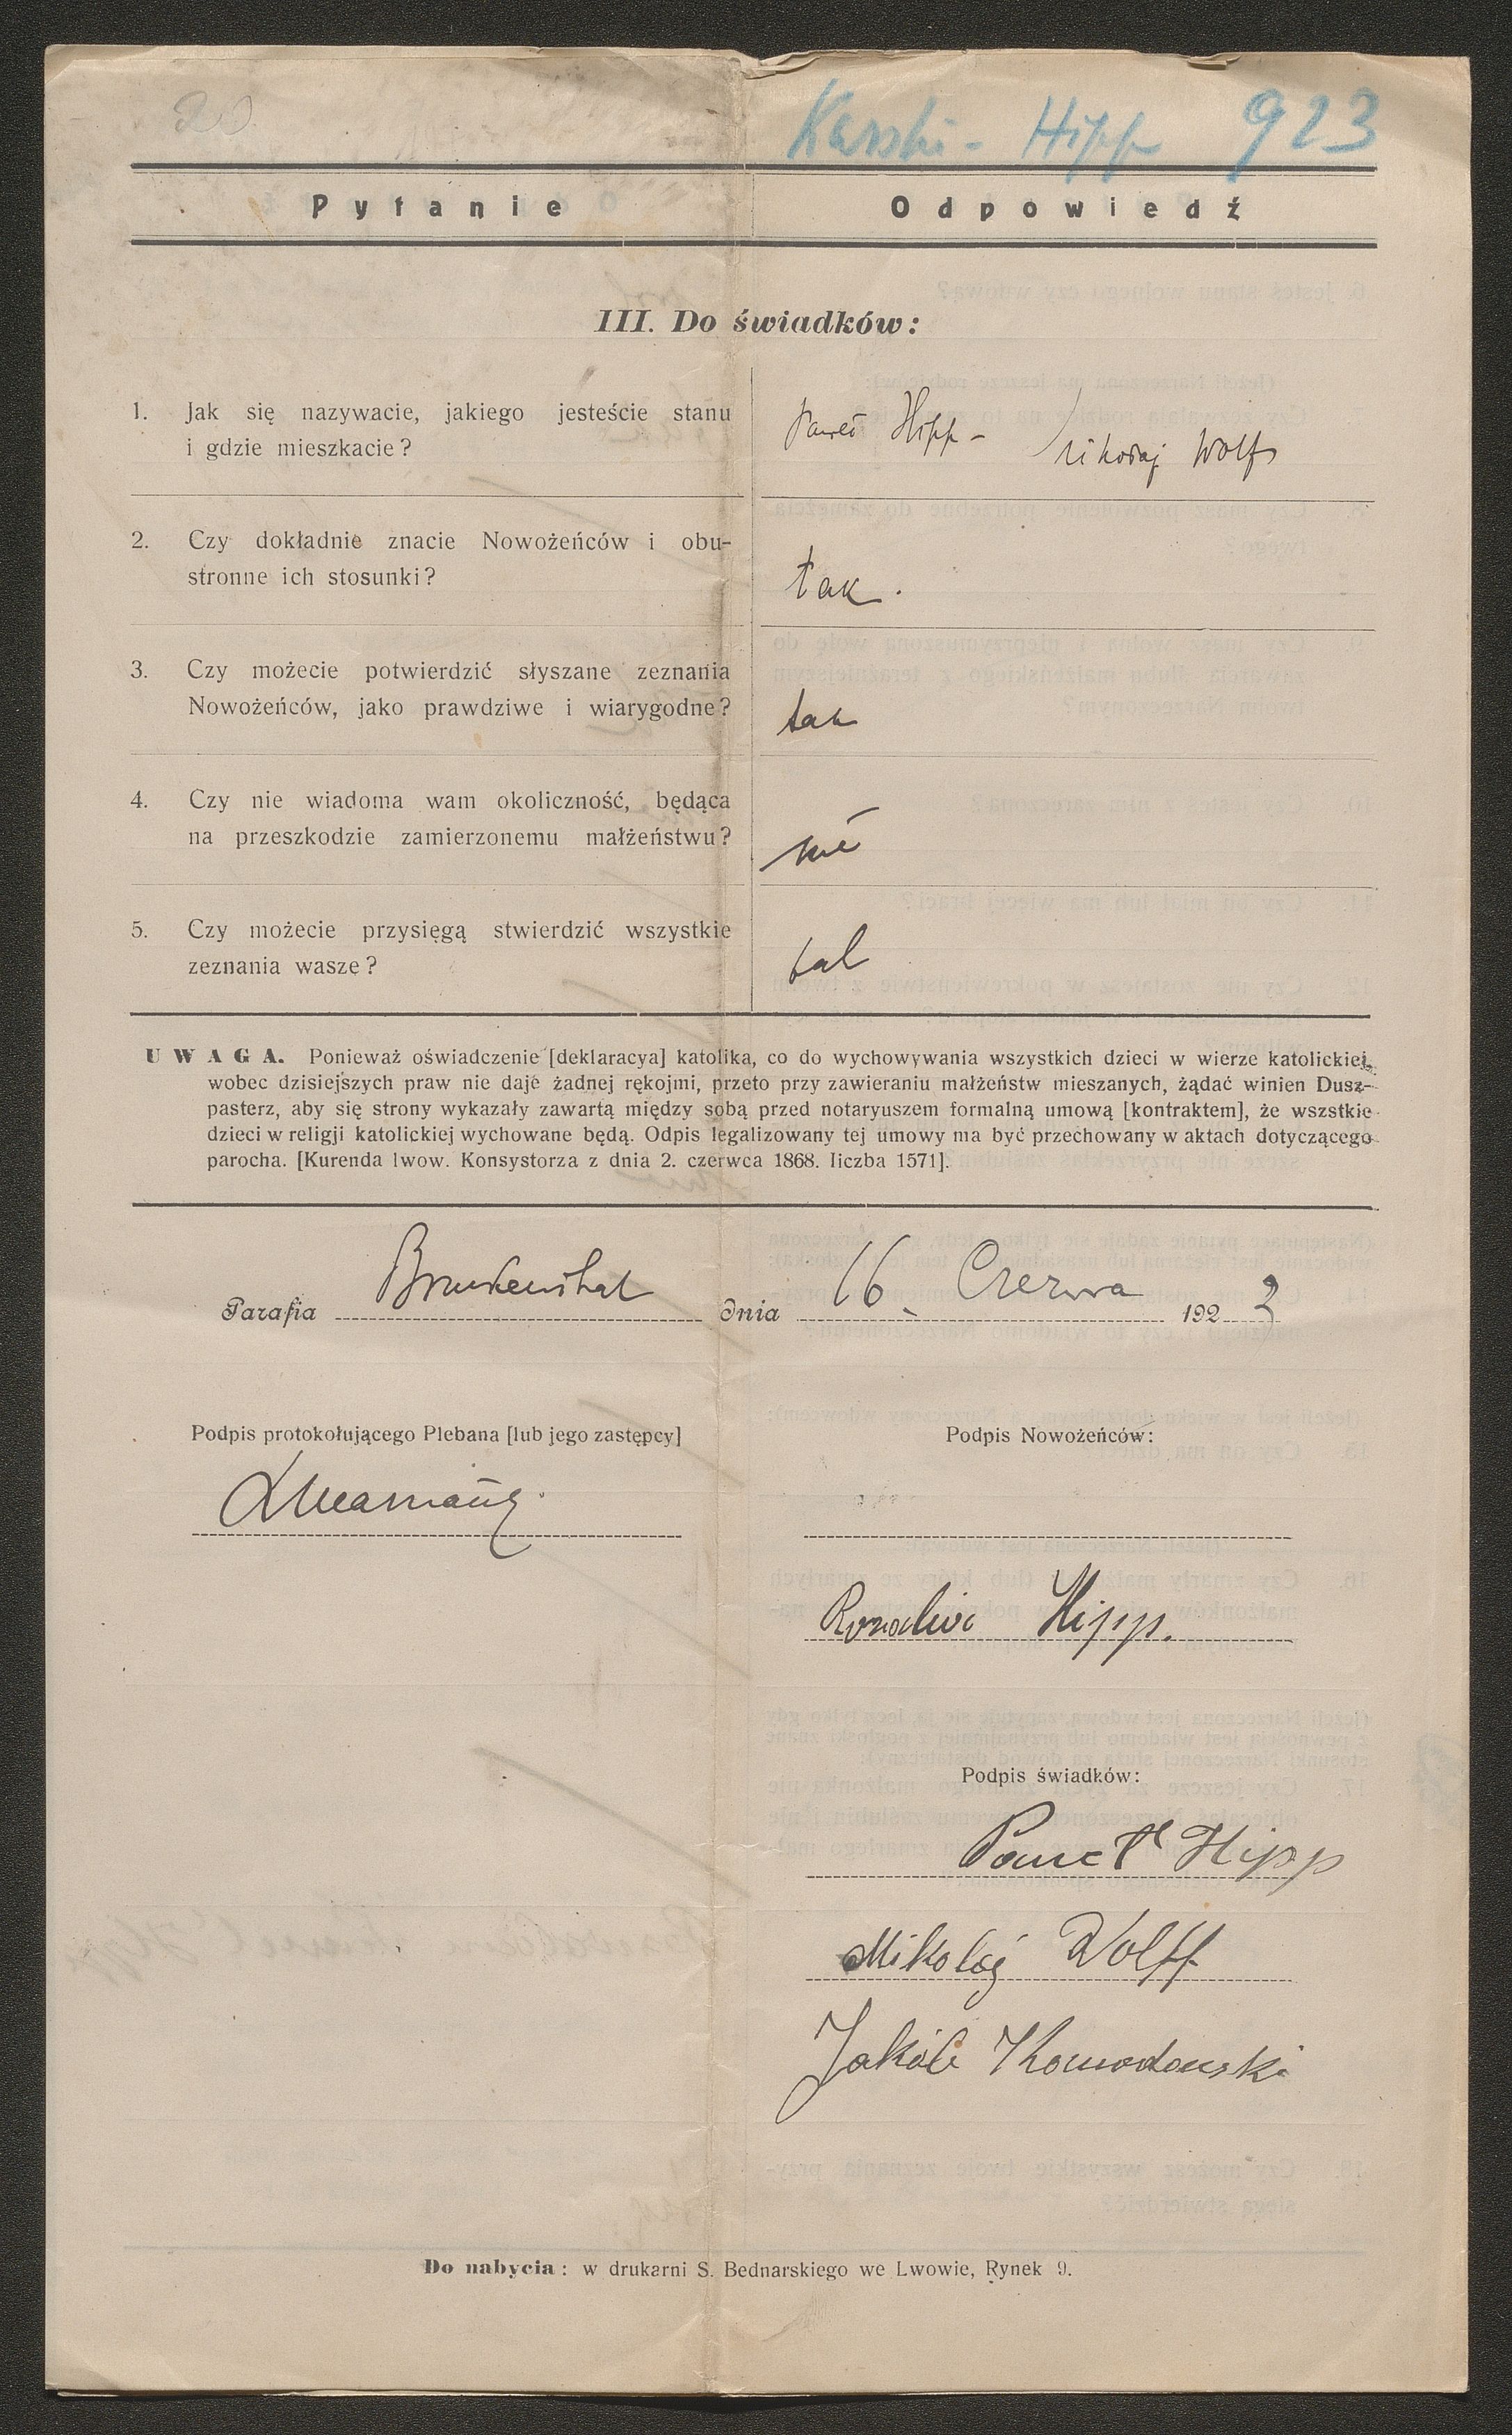 20
Karski - Hipp 923
Pytanie Odpowiedź
III. Do świadków:
1. Jak się nazywacie, jakiego jesteście stanu
i gdzie mieszkacie?
Paweł Hipp - Mikołaj Wolf
2. Czy dokładnie znacie Nowożeńców i obu-
stronne ich stosunki?
tak.
3. Czy możecie potwierdzić słyszane zeznania
Nowożeńców, jako prawdziwe i wiarygodne?
tak
4. Czy nie wiadoma wam okoliczność, będąca
na przeszkodzie zamierzonemu małżeństwu?
nie
5. Czy możecie przysięgą stwierdzić wszystkie
zeznania wasze?
tak
UWAGA. Ponieważ oświadczenie [deklaracya] katolika, co do wychowywania wszystkich dzieci w wierze katolickiej,
wobec dzisiejszych praw nie daje żadnej rękojmi, przeto przy zawieraniu małżeństw mieszanych, żądać winien Dusz-
pasterz, aby się strony wykazały zawartą między sobą przed notaryuszem formalną umową [kontraktem], że wszstkie
dzieci w religji katolickiej wychowane będą. Odpis legalizowany tej umowy ma być przechowany w aktach dotyczącego
parocha. [Kurenda lwow. Konsystorza z dnia 2. czerwca 1868. liczba 1571].
Parafia Bruckenthal dnia 16. Czerwca 1923
Podpis protokołującego Plebana [lub jego zastępcy]
Podpis Nowożeńców:
Rozalia Hipp.
Podpis świadków:
Paweł Hipp
Mikołaj Wolff
Jakób
Do nabycia: w drukarni S. Bednarskiego we Lwowie, Rynek 9.